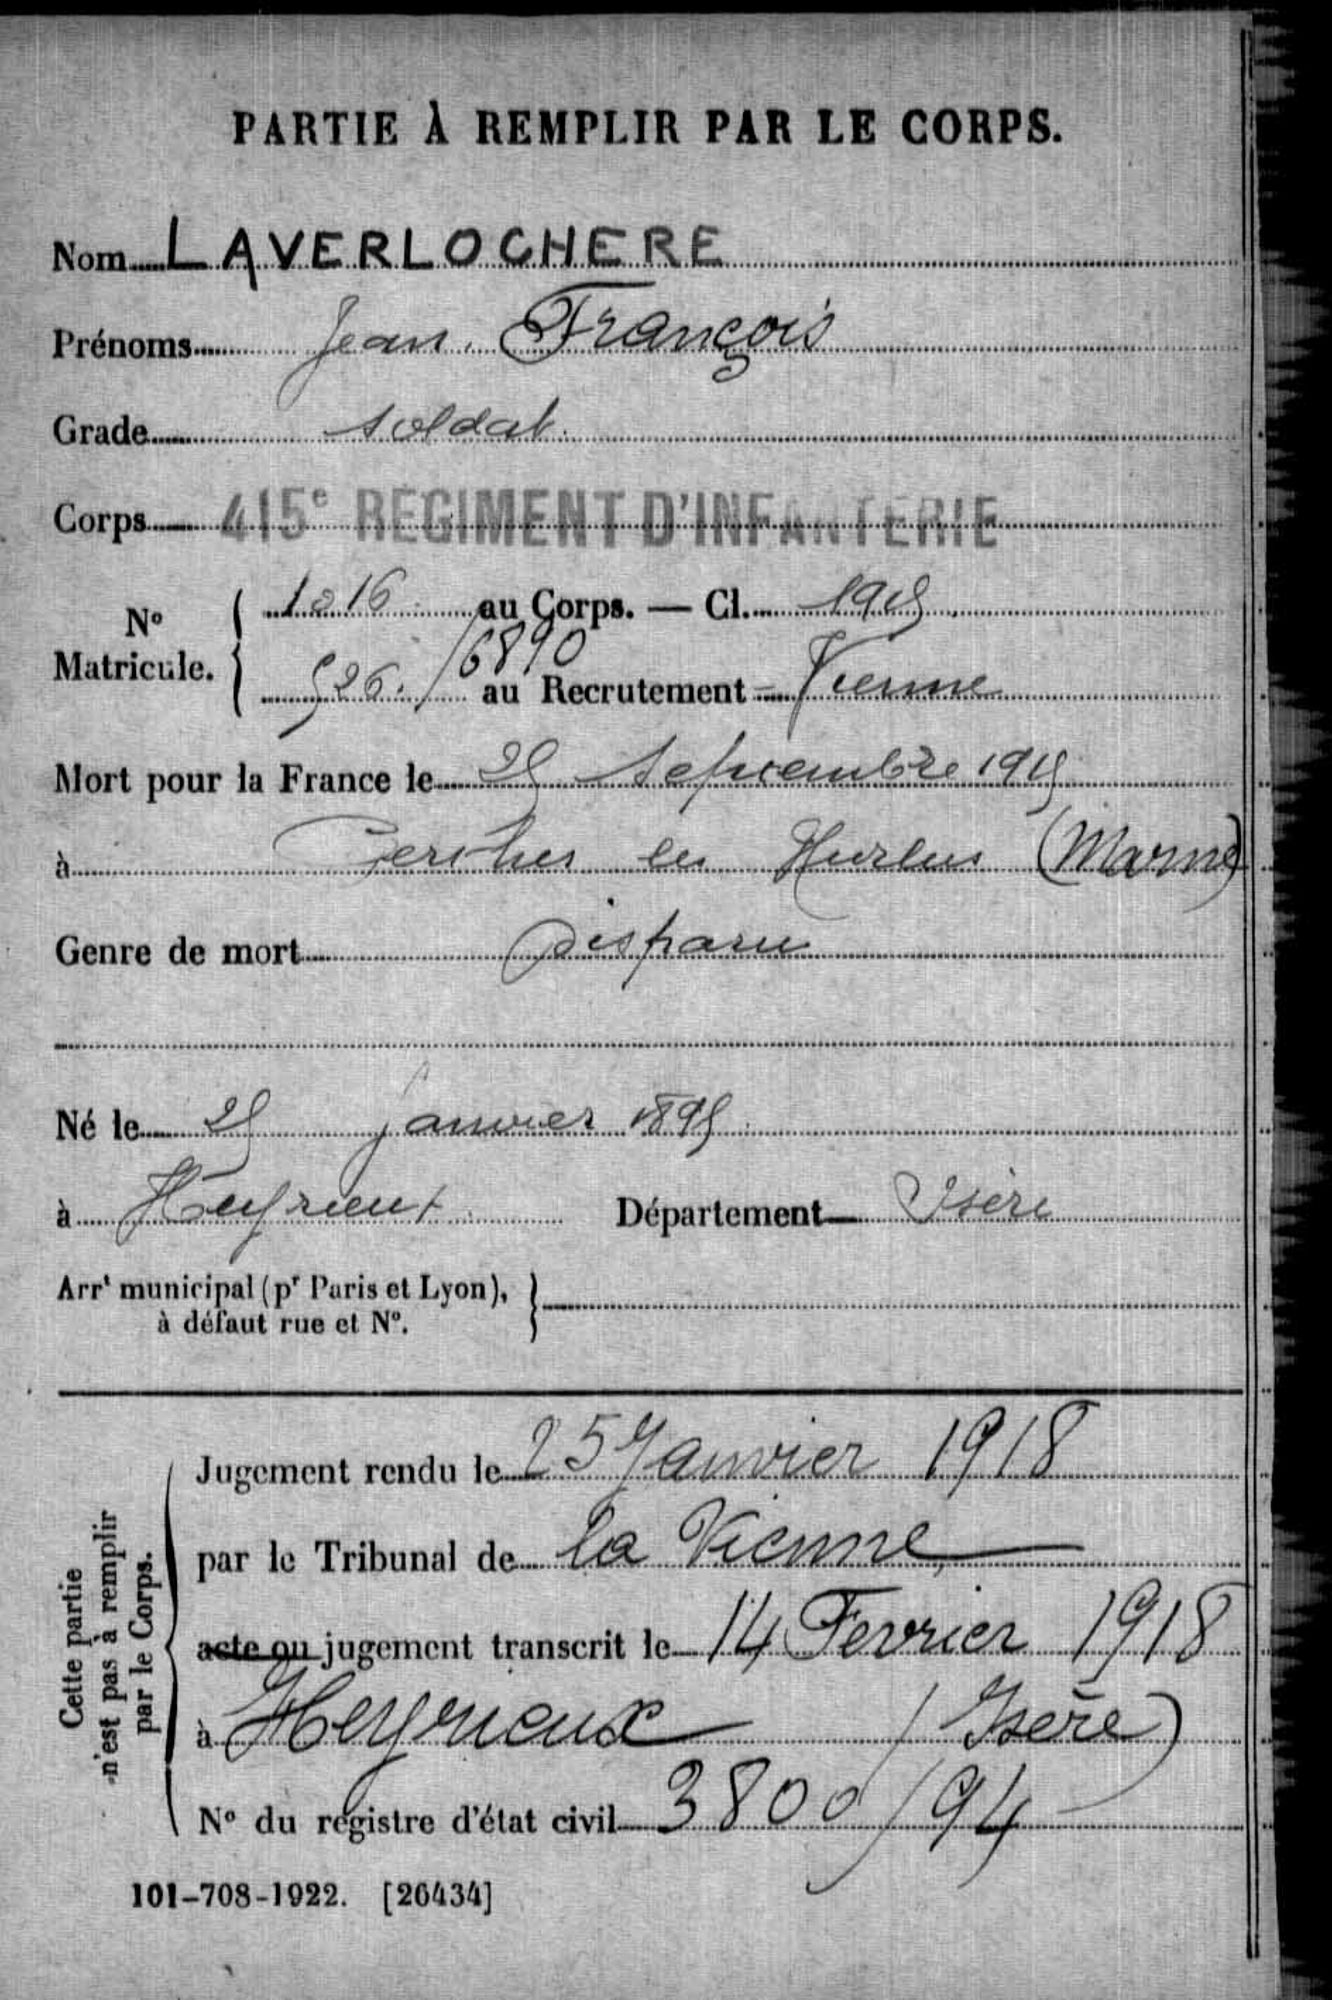 PARTIE À REMPLIR PAR LE CORPS.
Nom LAVERLOCHERE
Prénoms Jean François
Grade soldat.
Corps 415e REGIMENT D'INFANTERIE
No Matricule. { 1016 au Corps. — Cl. 1915
526. / 6890 au Recrutement Vienne
Mort pour la France le 25 Septembre 1915
à Perthes les Hurlus (Marne)
Genre de mort Disparu
Né le 25 janvier 1895
à Heyrieux Département Isère
Arrt municipal (pr Paris et Lyon), à défaut rue et No. }
Cette partie n'est pas à remplir par le Corps.
Jugement rendu le 25 Janvier 1918
par le Tribunal de la Vienne
acte ou jugement transcrit le 14 Fevrier 1918
à Heyrieux (Isère)
No du registre d'état civil 3800/94
101-708-1922. [26434]